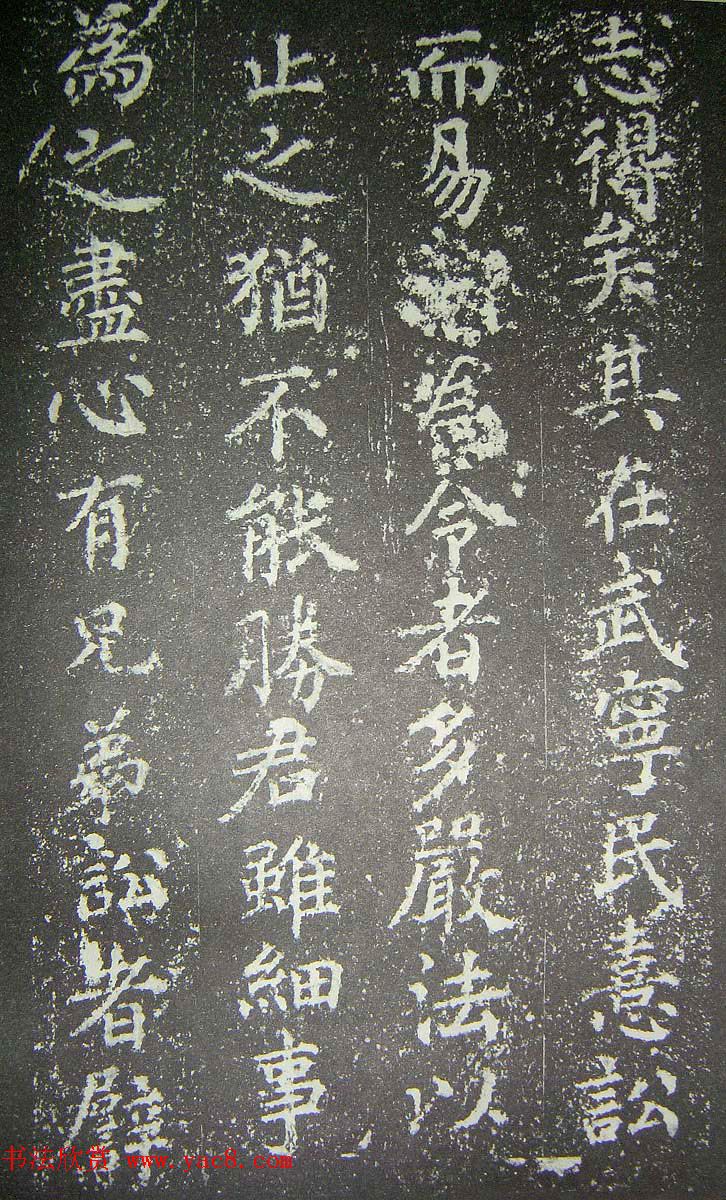 志得矣其在武寧民憙訟
而易為令者多嚴法以
止之猶不能勝君雖細事
為之盡心有兄弟訟者辟
书法欣赏 www.yac8.com